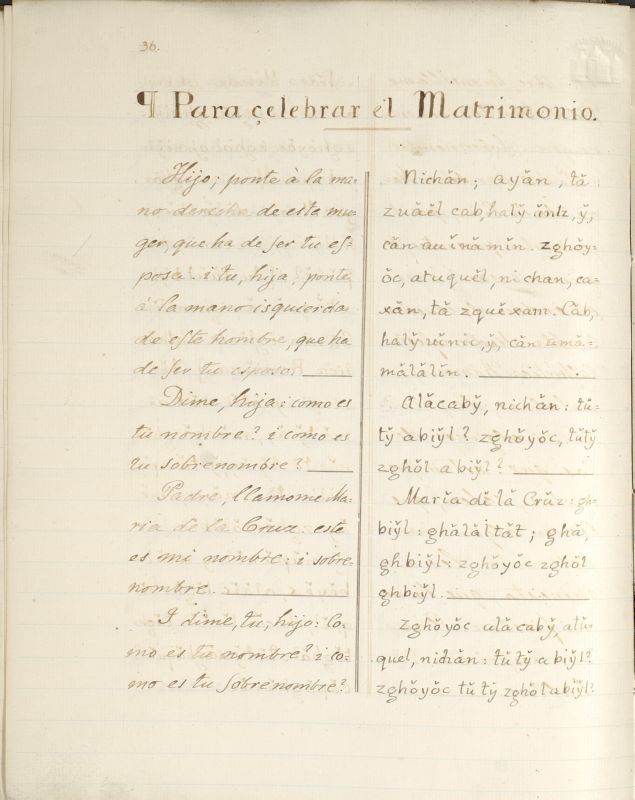 36.
¶ Para çelebrar el Matrimonio.
Hijo; ponte à la ma-
no derecha de este mu-
ger, que ha de ſer tu eſ-
posa. i tu, hija, ponte
à la mano isquierda
de eſte hombre, que ha
de ſer tu esposo.
Dime, hija: como es
tu nombre? i como es
tu sobrenombre?
Padre, llamome Ma-
ria de la Cruz este
es mi nombre: i sobre-
nombre.
I dime, tu, hijo: Co-
mo es tu nombre? i co-
mo es tu ſobrenombre?
Nichăn; ayăn, tă
zuăĕl cab, halў̆ ŭntz, ў̆,
căn auĭnă mĭn. zghŏy-
ŏc, atuquĕl, nichan, ca-
xăn, tă zquĕxam. Căb,
halў̆ uĭnic, ў̆, căn amă-
mălălĭn.
Alăcabў̆, nichăn: tŭ-
tў̆ abiўl? zghŏyŏc, tŭtў̆
zghŏl abiўl?
Marĭa dĕ lă Crŭz: gh-
biўl: ghălăltăt; ghă,
ghbiўl: zghŏyŏc zghŏl
ghbiўl.
zghŏyŏc alăcabў̆, atu-
quel, nichăn: tŭ tў̆ abiўl?
zghŏyŏc tŭ tў̆ zghŏl abiўl?